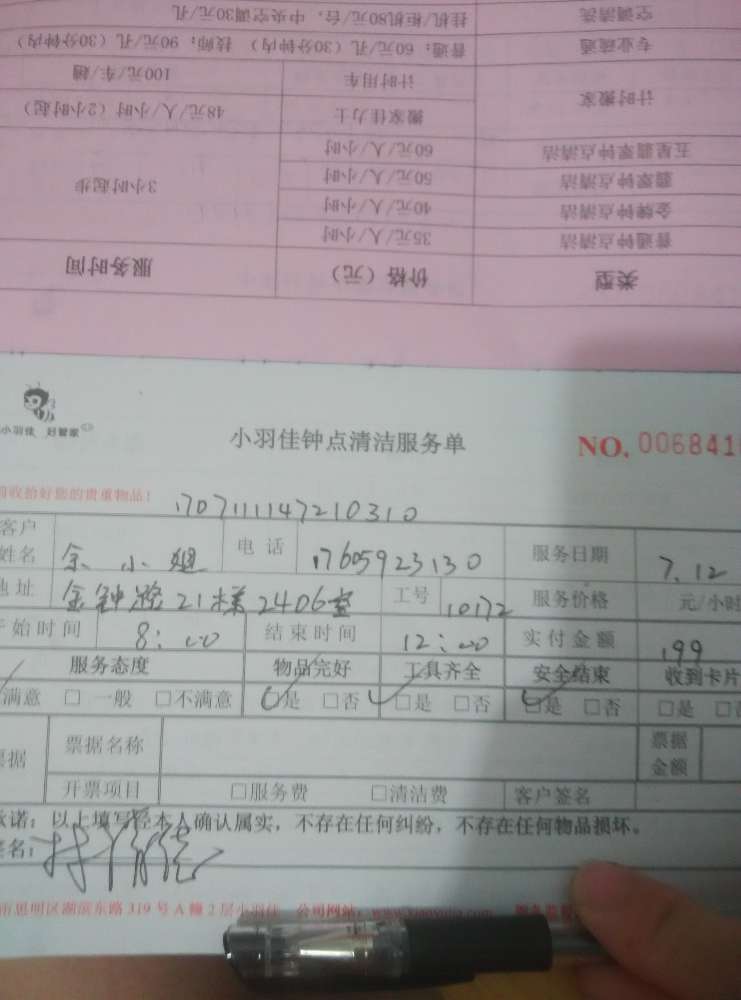 空调清洗 挂机/柜机80元/台，中央空调30元/孔
专业疏通 普通：60元/孔（30分钟内） 技师：90元/孔（30分钟内）
计时搬家 计时用车 100元/车/趟
搬家佳力士 48元/人/小时（2小时起）
五星翡翠钟点清洁 60元/人/小时
翡翠钟点清洁 50元/人/小时
金牌钟点清洁 40元/人/小时
普通钟点清洁 35元/人/小时
3小时起步
类型 价格（元） 服务时间
小羽佳 好管家
小羽佳钟点清洁服务单
NO. 006841
收拾好您的贵重物品！
170711114721 0310
客户姓名 余小姐 电话 17605923130 服务日期 7.12
地址 金钟路21楼2406室 工号 10172 服务价格 元/小时
开始时间 8:00 结束时间 12:00 实付金额 199
服务态度 物品完好 工具齐全 安全结束 收到卡片
满意 □一般 □不满意 □是 □否 □是 □否 □是 □否 □是 □
票据 票据名称 票据金额
开票项目 □服务费 □清洁费 客户签名
承诺：以上填写经本人确认属实，不存在任何纠纷，不存在任何物品损坏。
签名：
市思明区湖滨东路319号A幢2层小羽佳 公司网站：www.xiaoyujia.com 服务监督